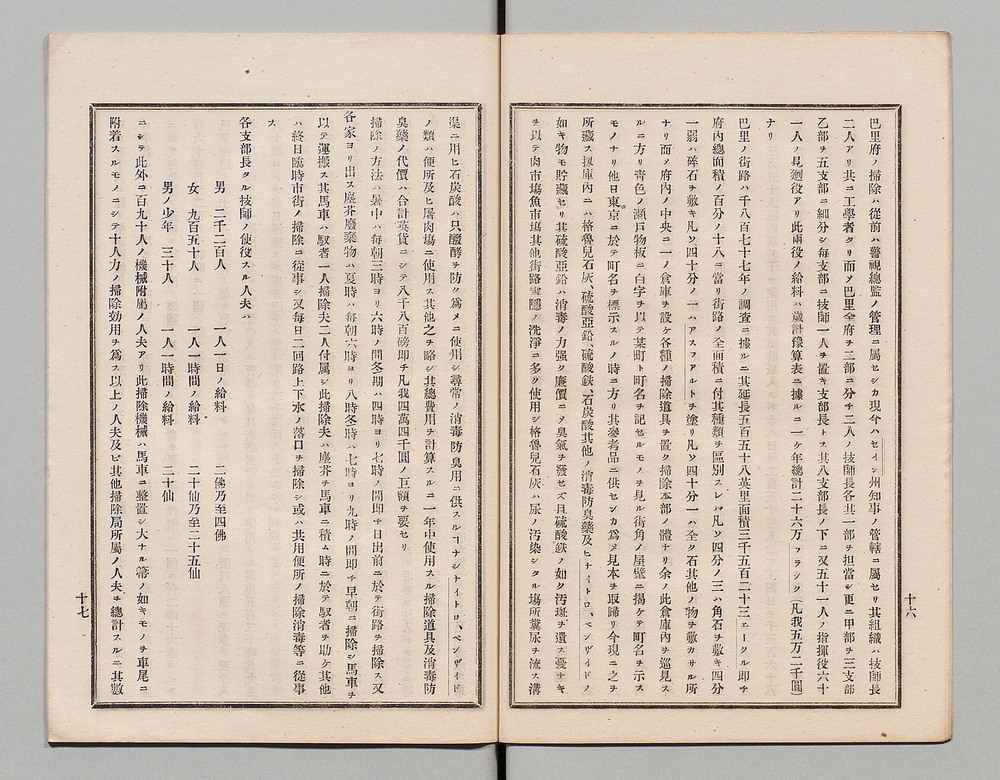 巴里府ノ掃除ハ從前ハ警視總監ノ管理ニ屬セシカ現今ハセイン州知事ノ管轄ニ屬セリ其組織ハ技師長
二人アリ共ニ工學者タリ而ノ巴里全府ヲ二部ニ分チ二人ノ技師長各其一部ヲ担當シ更ニ甲部ヲ三支部
乙部ヲ五支部ニ細分シ毎支部ニ技師一人ヲ置キ支部長トス其八支部長ノ下ニ又五十一人ノ指揮役六十
一人ノ見廻役アリ此兩役ノ給料ハ歳計豫算表ニ據ルニ一ケ年總計二十六万フランク（凡我五万二千圓
ナリ
巴里ノ街路ハ千八百七十七年ノ調査ニ據ルニ其延長五百五十八英里面積三千五百二十三エークル即チ
府内總面積ノ百分ノ十八ニ當リ街路ノ全面積ニ付其種類ヲ區別スレハ凡ソ四分ノ三ハ角石ヲ敷キ四分
一弱ハ碎石ヲ敷キ凡ソ四十分ノ一ハアスフアルトヲ塗リ凡ソ四十分一ハ全ク石其他ノ物ヲ敷カサル所
ナリ而ノ府内ノ中央ニ一ノ倉庫ヲ設ケ各種ノ掃除道具ヲ置ク掃除本部ノ體ナリ余ノ此倉庫内ヲ巡見ス
ルニ方リ青色ノ瀬戸物板ニ白字ヲ以テ某町ト町名ヲ記セルモノヲ見ル街角ノ屋壁ニ揭ケテ町名ヲ示ス
モノナリ他日東京ニ於テ町名ヲ標示スルノ時ニ方リ其參考品ニ供センカ爲メ見本ヲ取歸リ今現ニ之ヲ
所藏ス揬庫内ニハ格魯兒石灰、硫酸亞鉛、硫酸鉄、石炭酸其他ノ消毒防臭藥及ヒナイトロ、ベンザイドノ
如キ物モ貯藏セリ其硫酸亞鉛ハ消毒ノ力强ク廉價ニノ臭氣ヲ發セズ且硫酸鉄ノ如ク汚斑ヲ遺スノ憂ナキ
ヲ以テ肉市塲魚市塲其他街路雪隱ノ洗淨ニ多ク使用シ格魯兒石灰ハ尿ノ汚染シタル塲所糞尿ヲ流ス溝
十六
渠ニ用ヒ石炭酸ハ只醱酵ヲ防ク爲メニ使用シ尋常ノ消毒防臭用ニ供スルヿナシナイトロ、ベンザイド
ノ類ハ便所及ヒ屠肉塲ニ使用ス其他之ヲ略シ其總費用ヲ計算スルニ一年中使用スル掃除道具及消毒防
臭藥ノ代價ハ合計英貨ニシテ八千八百磅即チ凡我四萬四千圓ノ巨額ヲ要セリ
掃除ノ方法ハ暑中ハ毎朝三時ヨリ六時ノ間冬期ハ四時ヨリ七時ノ間即チ日出前ニ於テ街路ヲ掃除ス又
各家ヨリ出ス塵芥廢棄物ハ夏時ハ毎朝六時ヨリ八時冬時ハ七時ヨリ九時ノ間即チ早朝ニ掃除シ馬車ヲ
以テ運搬ス其馬車ハ馭者一人掃除夫二人付属シ此掃除夫ハ塵芥ヲ馬車ニ積ム時ニ於テ馭者ヲ助ケ其他
ハ終日臨時市街ノ掃除ニ從事シ又毎日二回路上下水ノ落口ヲ掃除シ或ハ共用便所ノ掃除消毒等ニ從事
ス
各支部長タル技師ノ使役スル人夫ハ
男　二千二百人　一人一日ノ給料　二佛乃至四佛
女　九百五十人　一人一時間ノ給料　二十仙乃至二十五仙
男ノ少年　三十人　一人一時間ノ給料　二十仙
ニシテ此外ニ百九十人ノ機械附屬ノ人夫アリ此掃除機械ハ馬車ニ整置シ大ナル箒ノ如キモノヲ車尾ニ
附着スルモノニシテ十人力ノ掃除効用ヲ爲ス以上ノ人夫及ビ其他掃除局所屬ノ人夫ヲ總計スルニ其數
十七